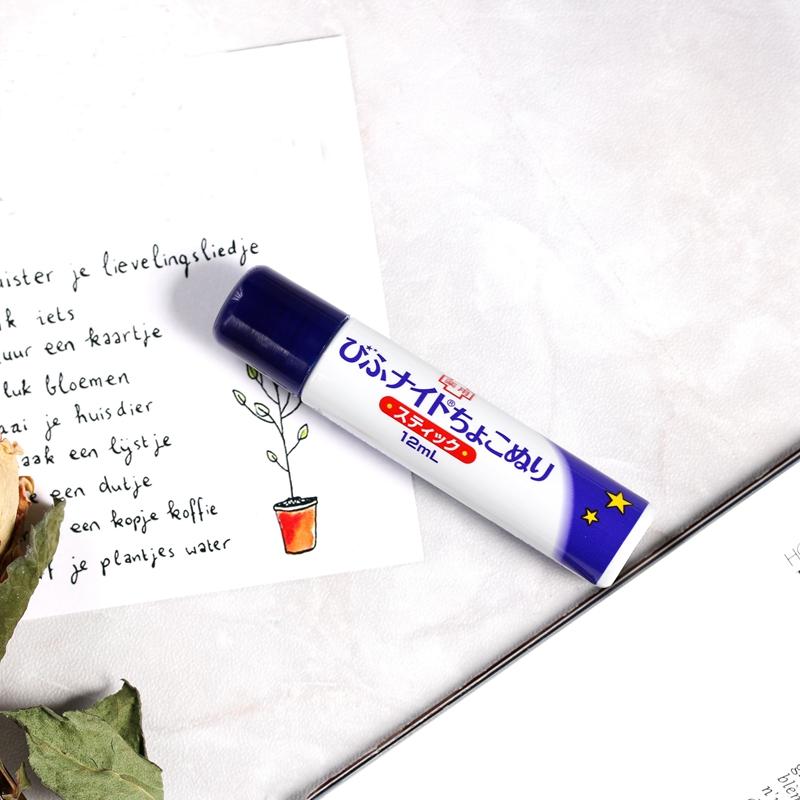 je lievelingsliedje
iets
een kaartje
bloemen
je huisdier
een lijstje
een dutje
een kopje koffie
je plantjes water
びふナイト®ちょこぬり
スティック
12mL